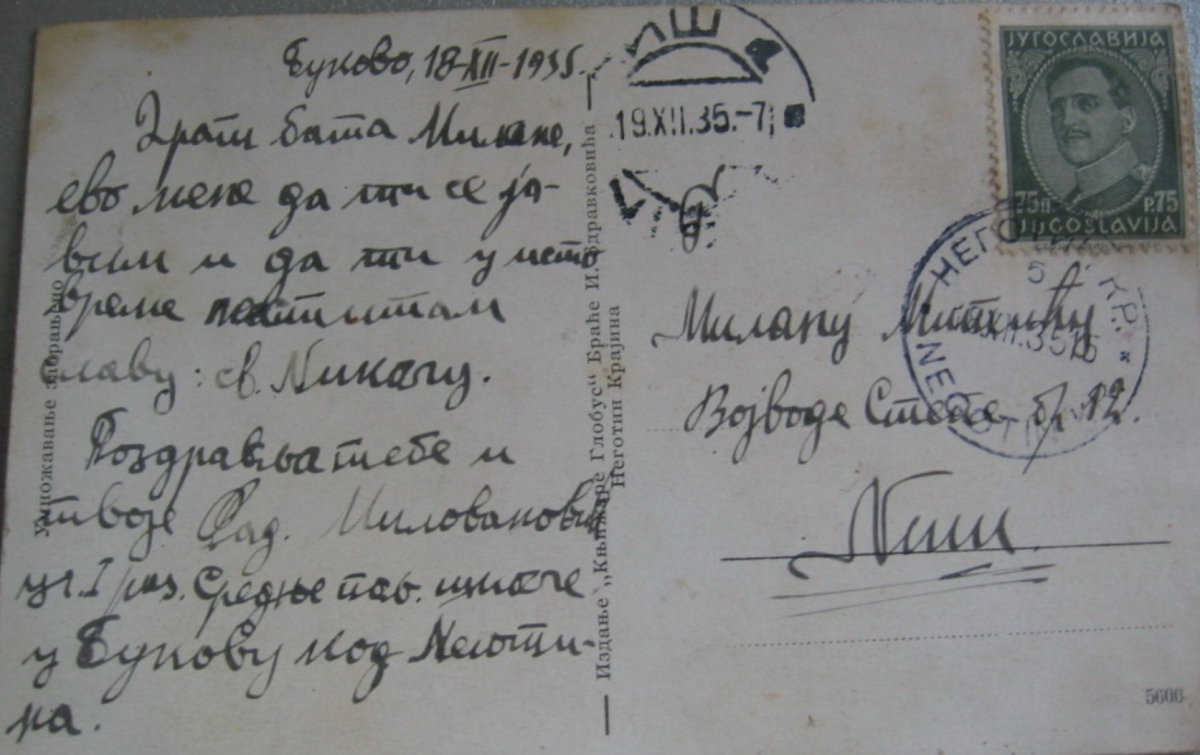 Буково, 18-XII-1935.
Драги бата Милане,
ево мене да ти се ја-
вим и да ти у исто
време честитам
славу: св. Николу.
Поздравља тебе и
твоје Рад. Миловановић
уч. I раз. Средње пољ. школе
у Букову код Неготи-
на.
Умножавање забрањено
Издање „Књижаре Глобус“ Браће И. Здравковића
Неготин Крајина
19.XII.35.-7
ЈУГОСЛАВИЈА
75п P.75
JUGOSLAVIJA
НЕГОТИН КР.
Милану
Војводе Степе бр. 12.
Ниш
5606